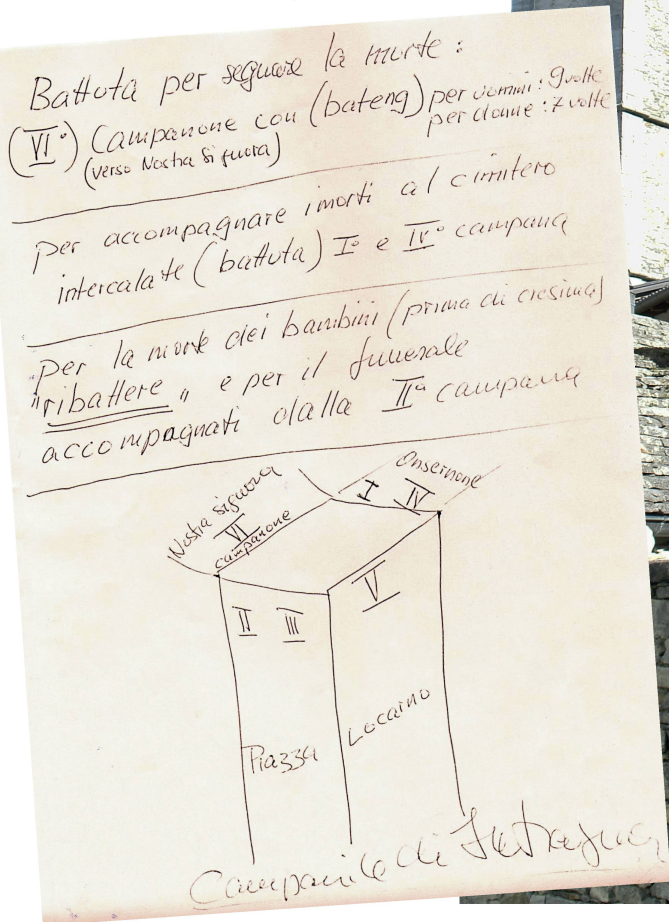 Battuta per segnare la morte :
(VI°) Campanone con (bateng) per uomini : 9 volte
(verso Nostra Signora) per donne : 7 volte
per accompagnare i morti al cimitero
intercalate (battuta) I° e IV° campana
per la morte dei bambini (prima di cresima)
"ribattere" e per il funerale
accompagnati dalla IIª campana
Nostra Signora
VI
campanone
Onsernone
I IV
II III
V
Piazza
Locarno
Campanile di Intragna